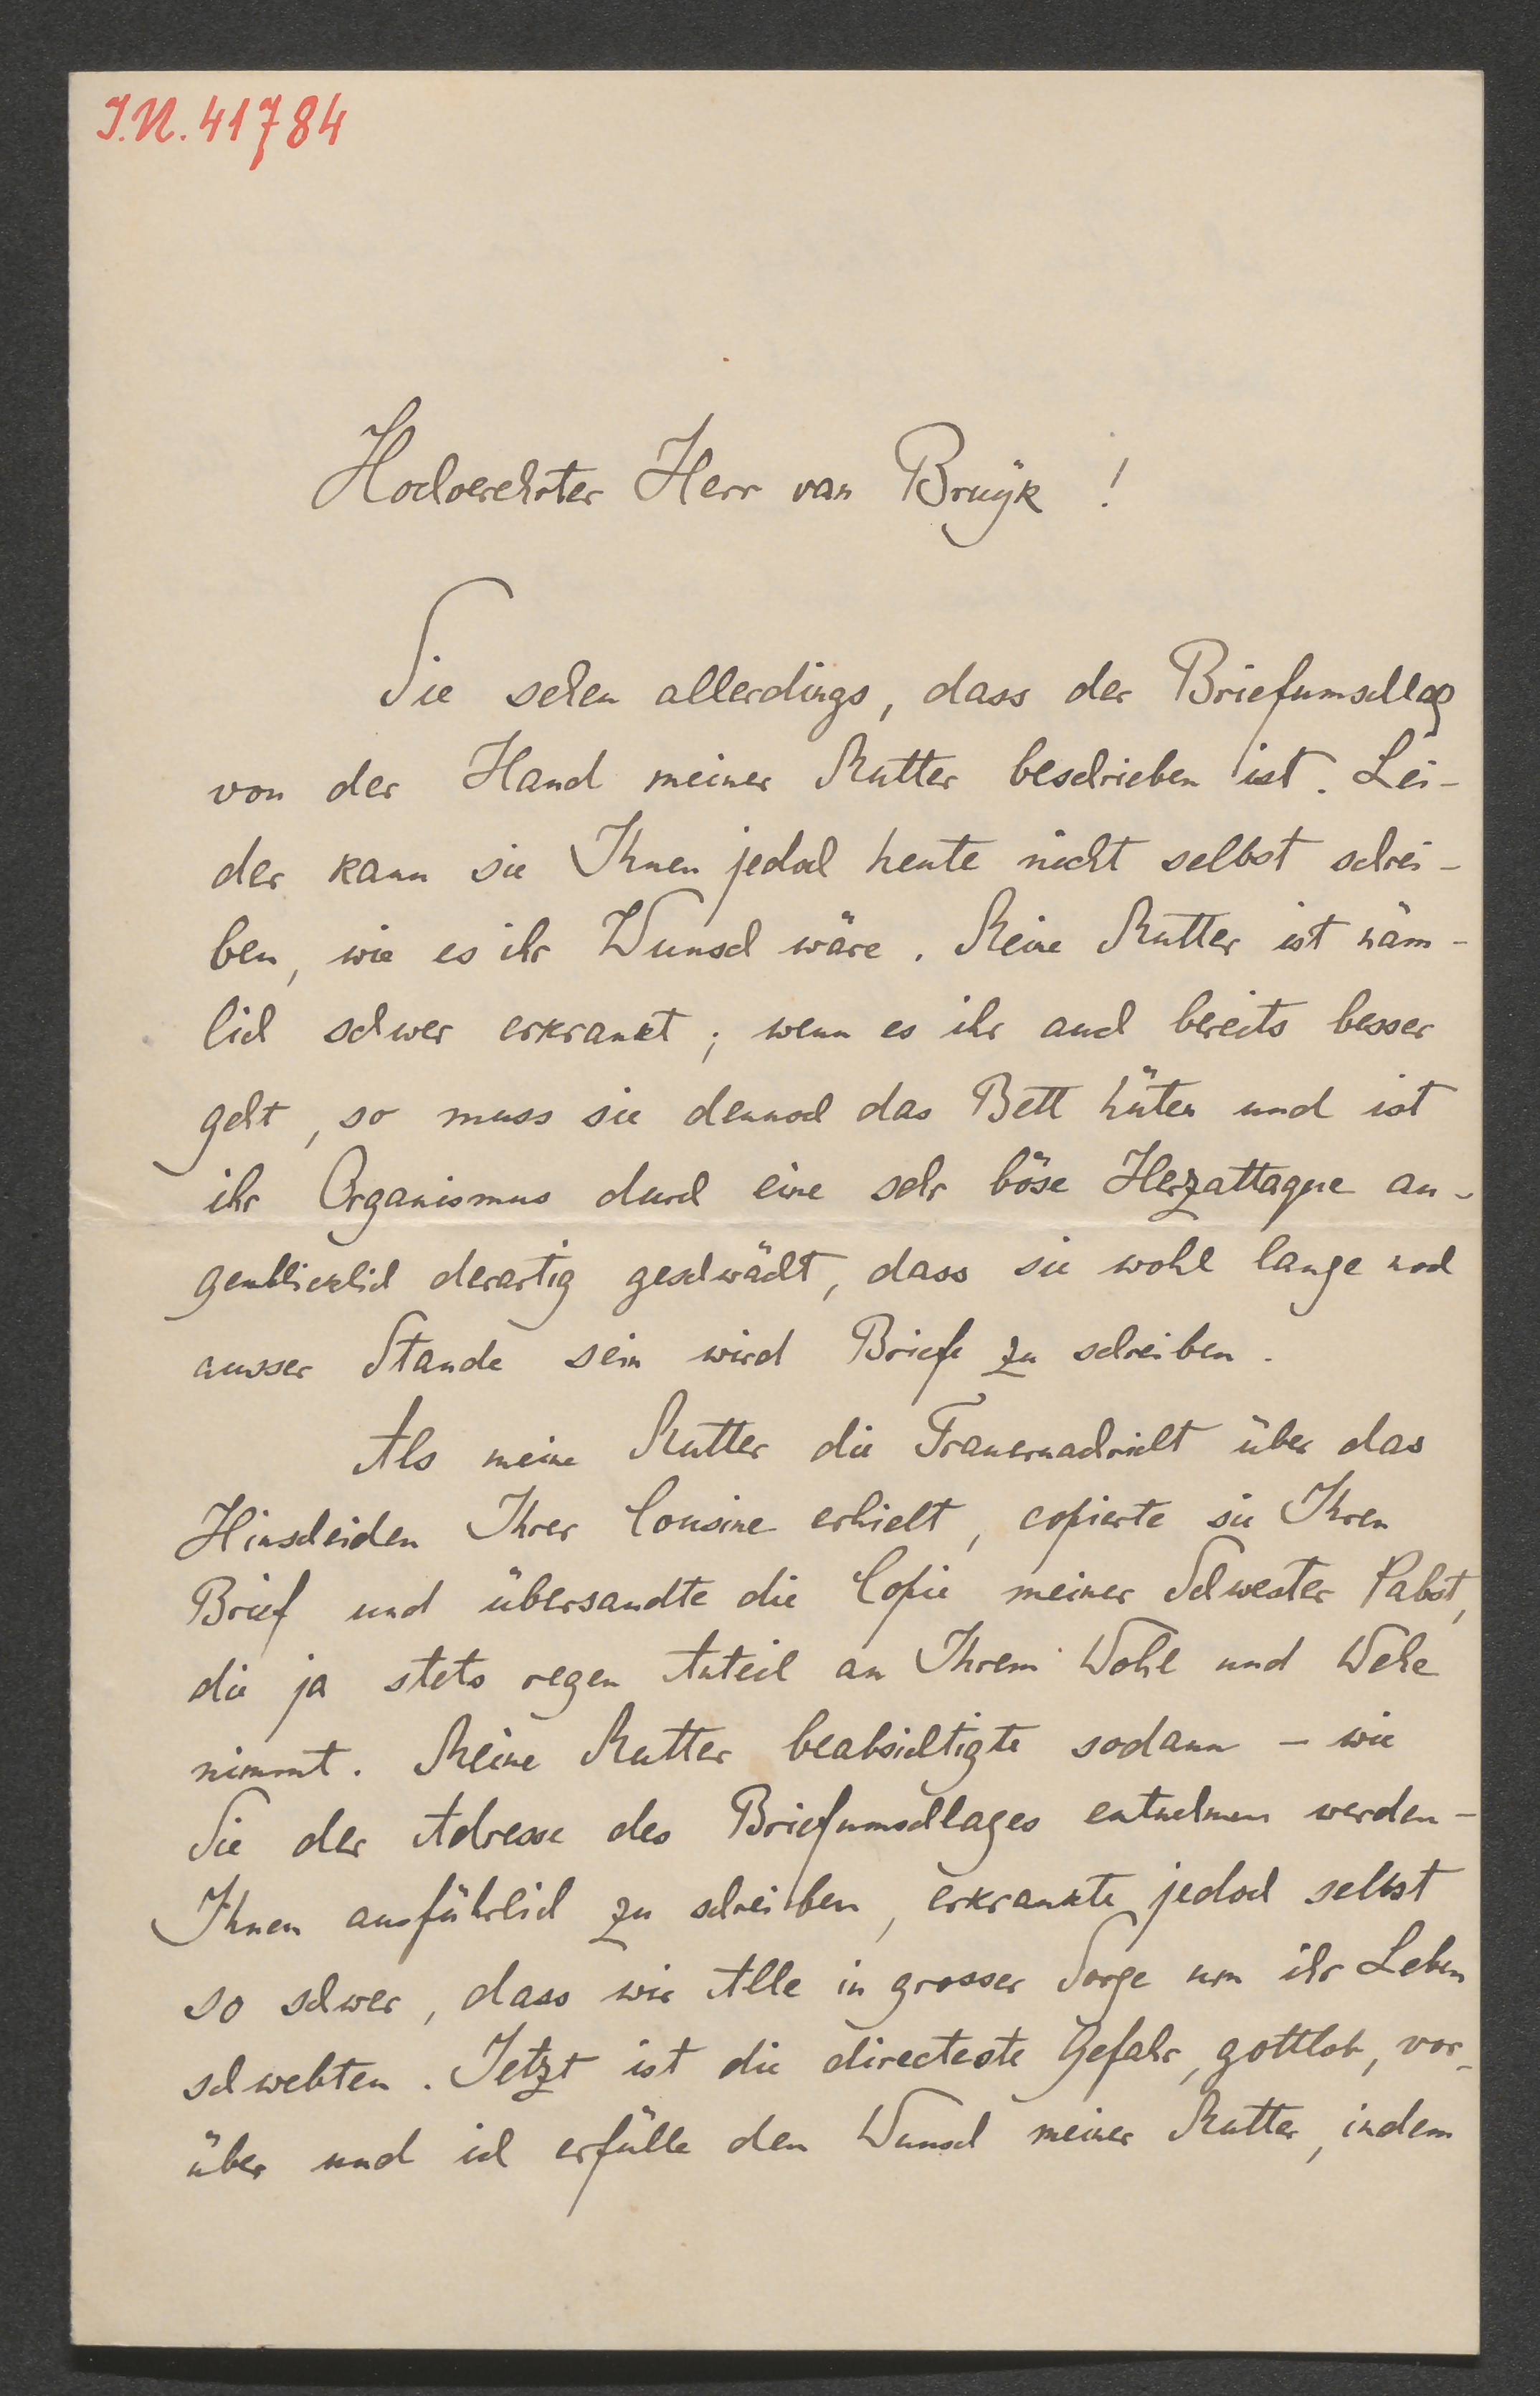 I.N. 41784
Hochverehrter Herr van Bruyk !
Sie sehen allerdings, dass der Briefumschlag
von der Hand meiner Mutter beschrieben ist. Lei-
der kann sie Ihnen jedoch heute nicht selbst schrei-
ben, wie es ihr Wunsch wäre. Meine Mutter ist näm-
lich schwer erkrankt; wenn es ihr auch bereits besser
geht, so muss sie dennoch das Bett hüten und ist
ihr Organismus durch eine sehr böse Herzattaque au-
genblicklich derartig geschwächt, dass sie wohl lange noch
ausser Stande sein wird Briefe zu schreiben.
Als meine Mutter die Trauernachricht über das
Hinscheiden Ihrer Cousine erhielt, copierte sie Ihren
Brief und übersandte die Copie meiner Schwester Pabst,
die ja stets regen Anteil an Ihrem Wohl und Wehe
nimmt. Meine Mutter beabsichtigte sodann – wie
Sie der Adresse des Briefumschlages entnehmen werden –
Ihnen ausführlich zu schreiben, erkrankte jedoch selbst
so schwer, dass wir Alle in grosser Sorge um ihr Leben
schwebten. Jetzt ist die directeste Gefahr, gottlob, vor-
über und ich erfülle den Wunsch meiner Mutter, indem